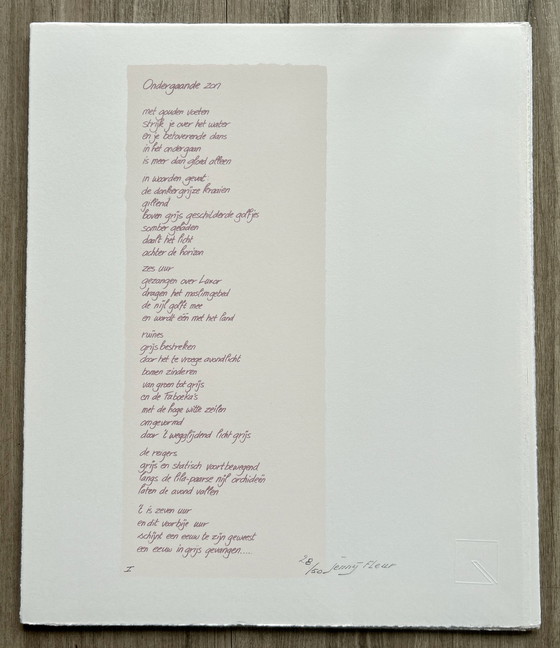 Ondergaande zon
met gouden voeten
strijk je over het water
en je betoverende dans
in het ondergaan
is meer dan gloed alleen
in woorden gevat:
de donkergrijze kraaien
gillend
boven grijs geschilderde golfjes
somber geladen
daalt het licht
achter de horizon
zes uur
gezangen over Luxor
dragen het moslimgebed
de nijl golft mee
en wordt één met het land
ruïnes
grijs bestreken
door het te vroege avondlicht
bomen zinderen
van groen tot grijs
en de Faloeka's
met de hoge witte zeilen
omgevormd
door 't wegglijdend licht grijs
de reigers
grijs en statisch voortbewegend
langs de lila-paarse nijl orchideeën
laten de avond vallen
't is zeven uur
en dit voorbije uur
schijnt een eeuw te zijn geweest
een eeuw in grijs gevangen....
I 28/50 Jenny Fleur